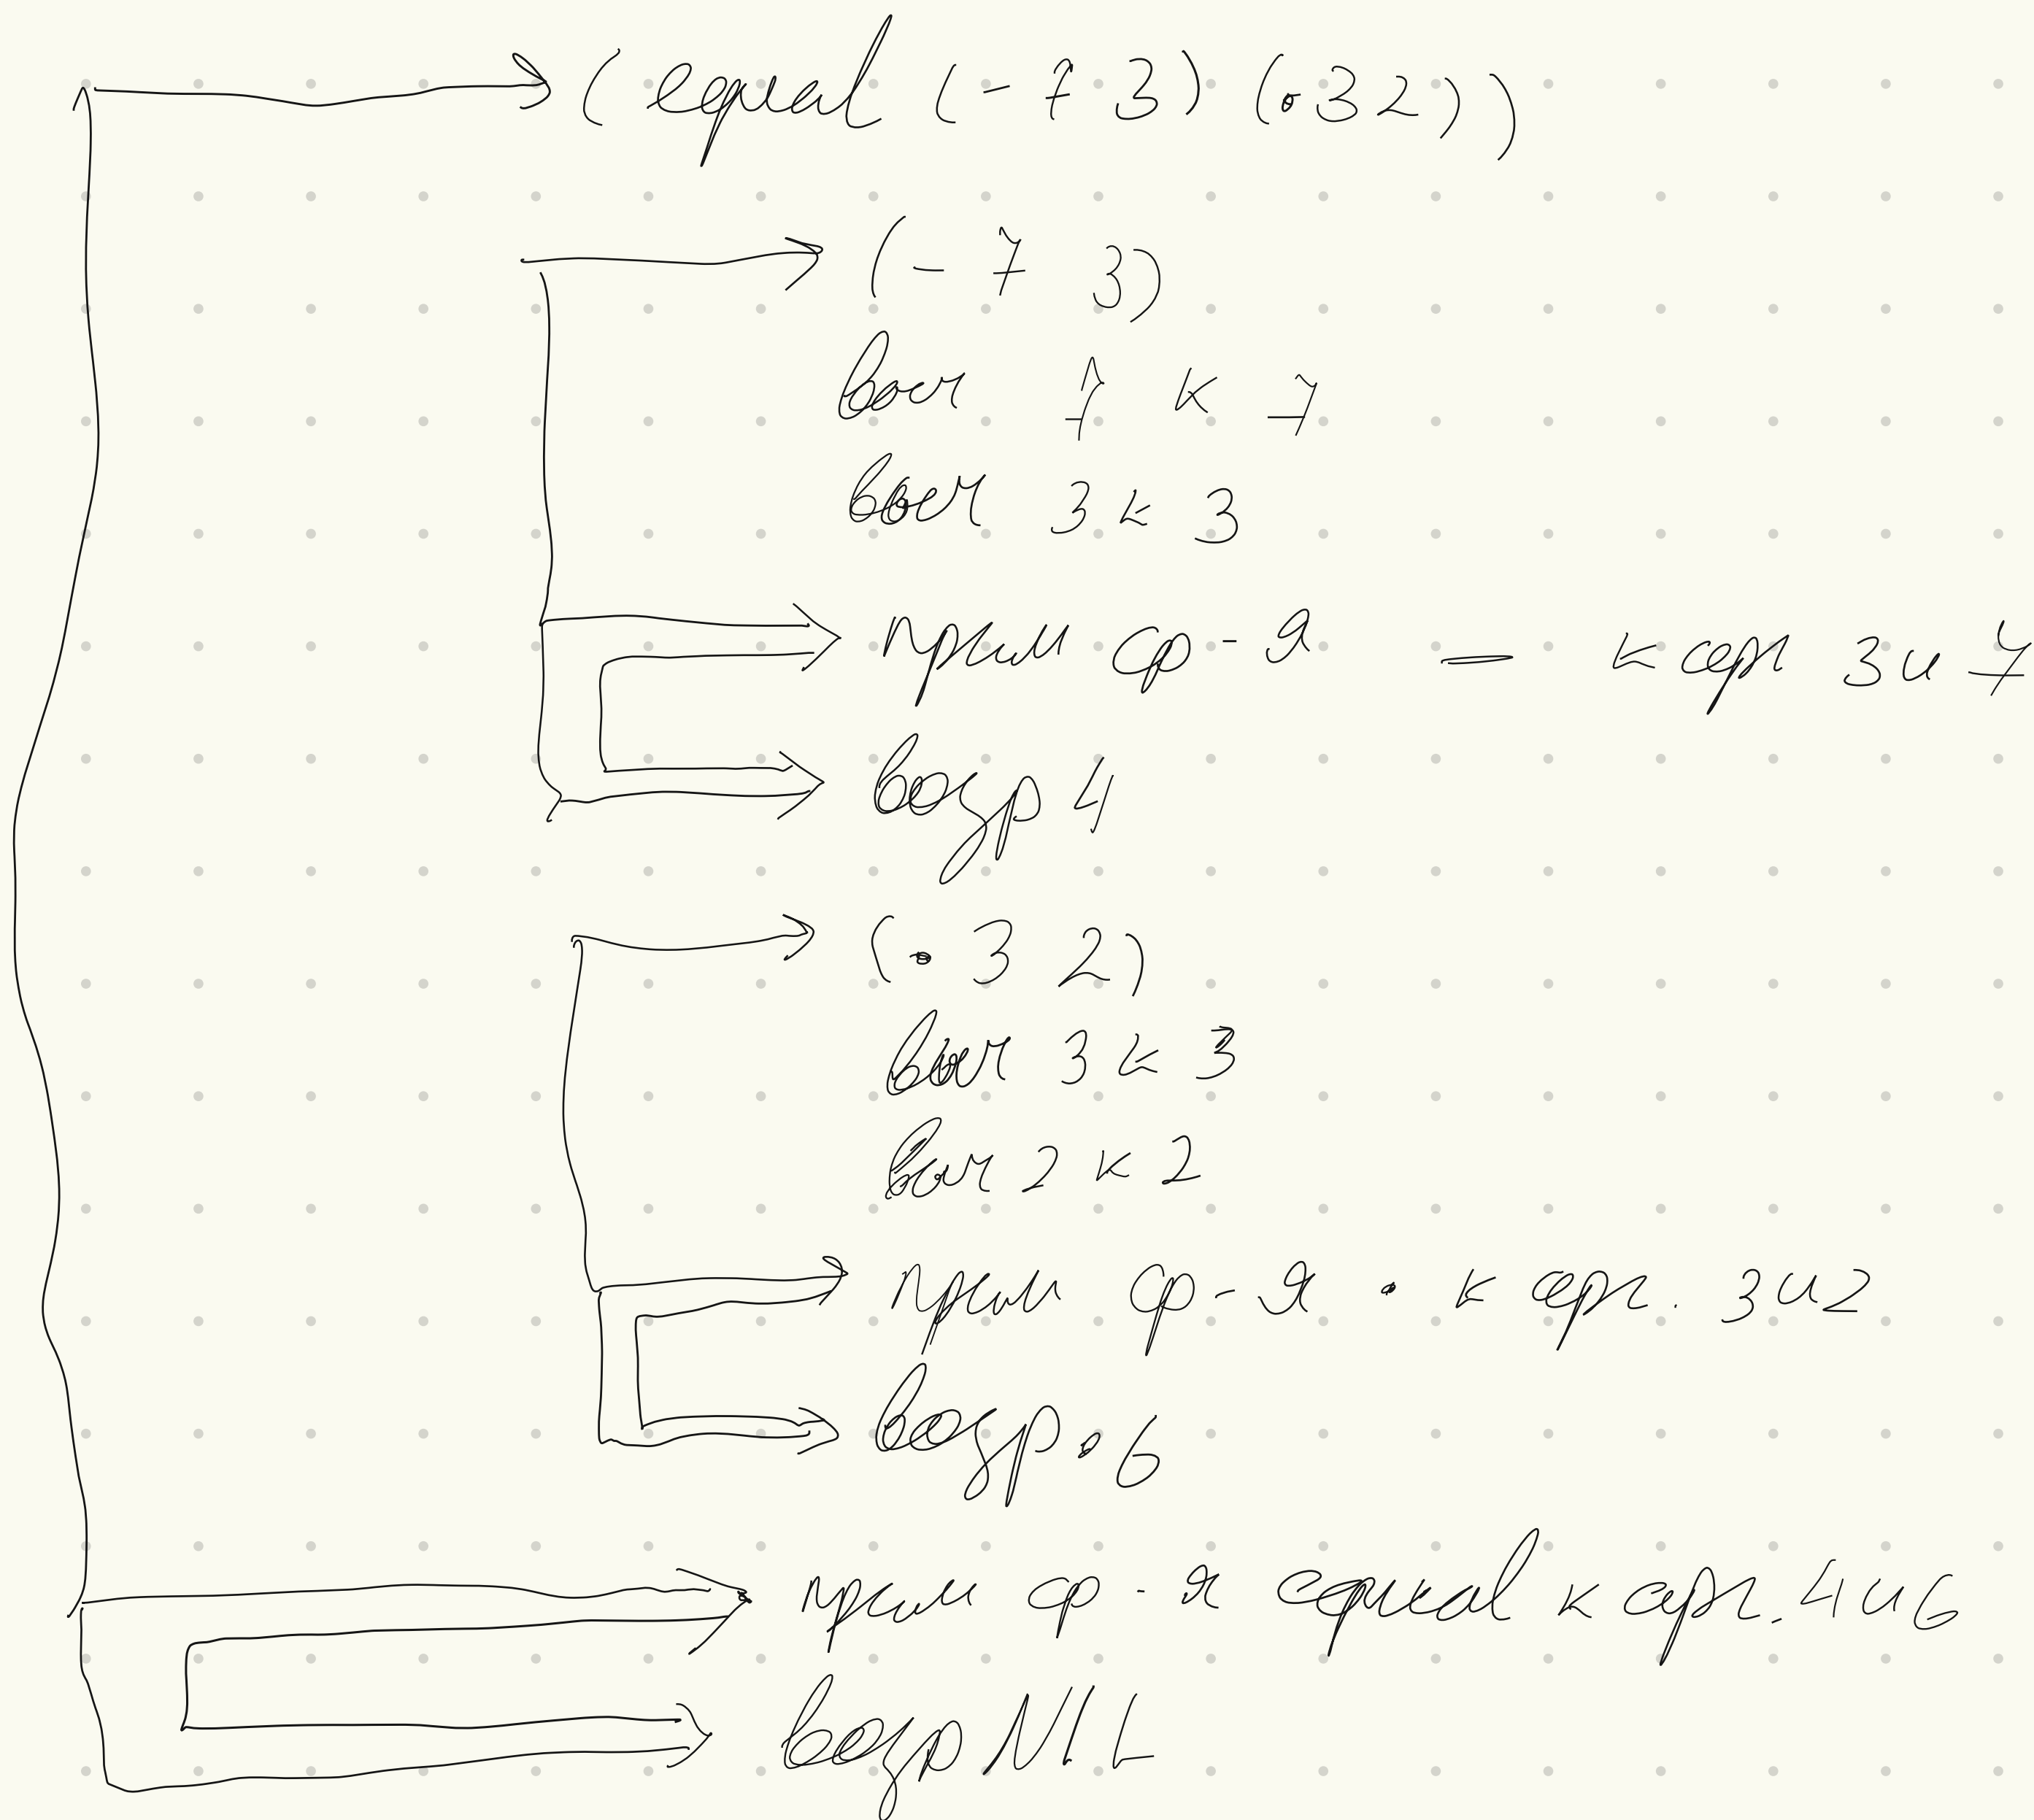 ( equal (- 7 3) (• 3 2))
(- 7 3)
выч 7 к 7
выч 3 к 3
прим ф-я — к арг 3 и 7
возр 4
(• 3 2)
выч 3 к 3
выч 2 к 2
прим ф-я • к арг. 3 и 2
возр • 6
прим ф-я equal к арг. 4 и 6
возр NIL